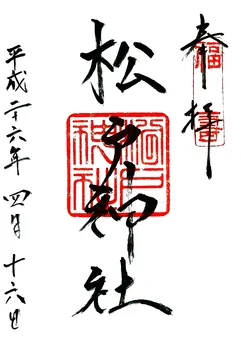 奉拝
松戸神社
平成二十六年四月十六日